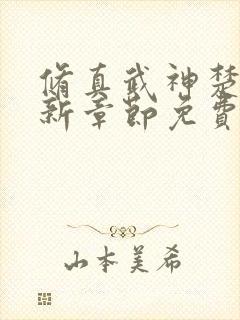 脩真武神楚
新章節免費
山本美希